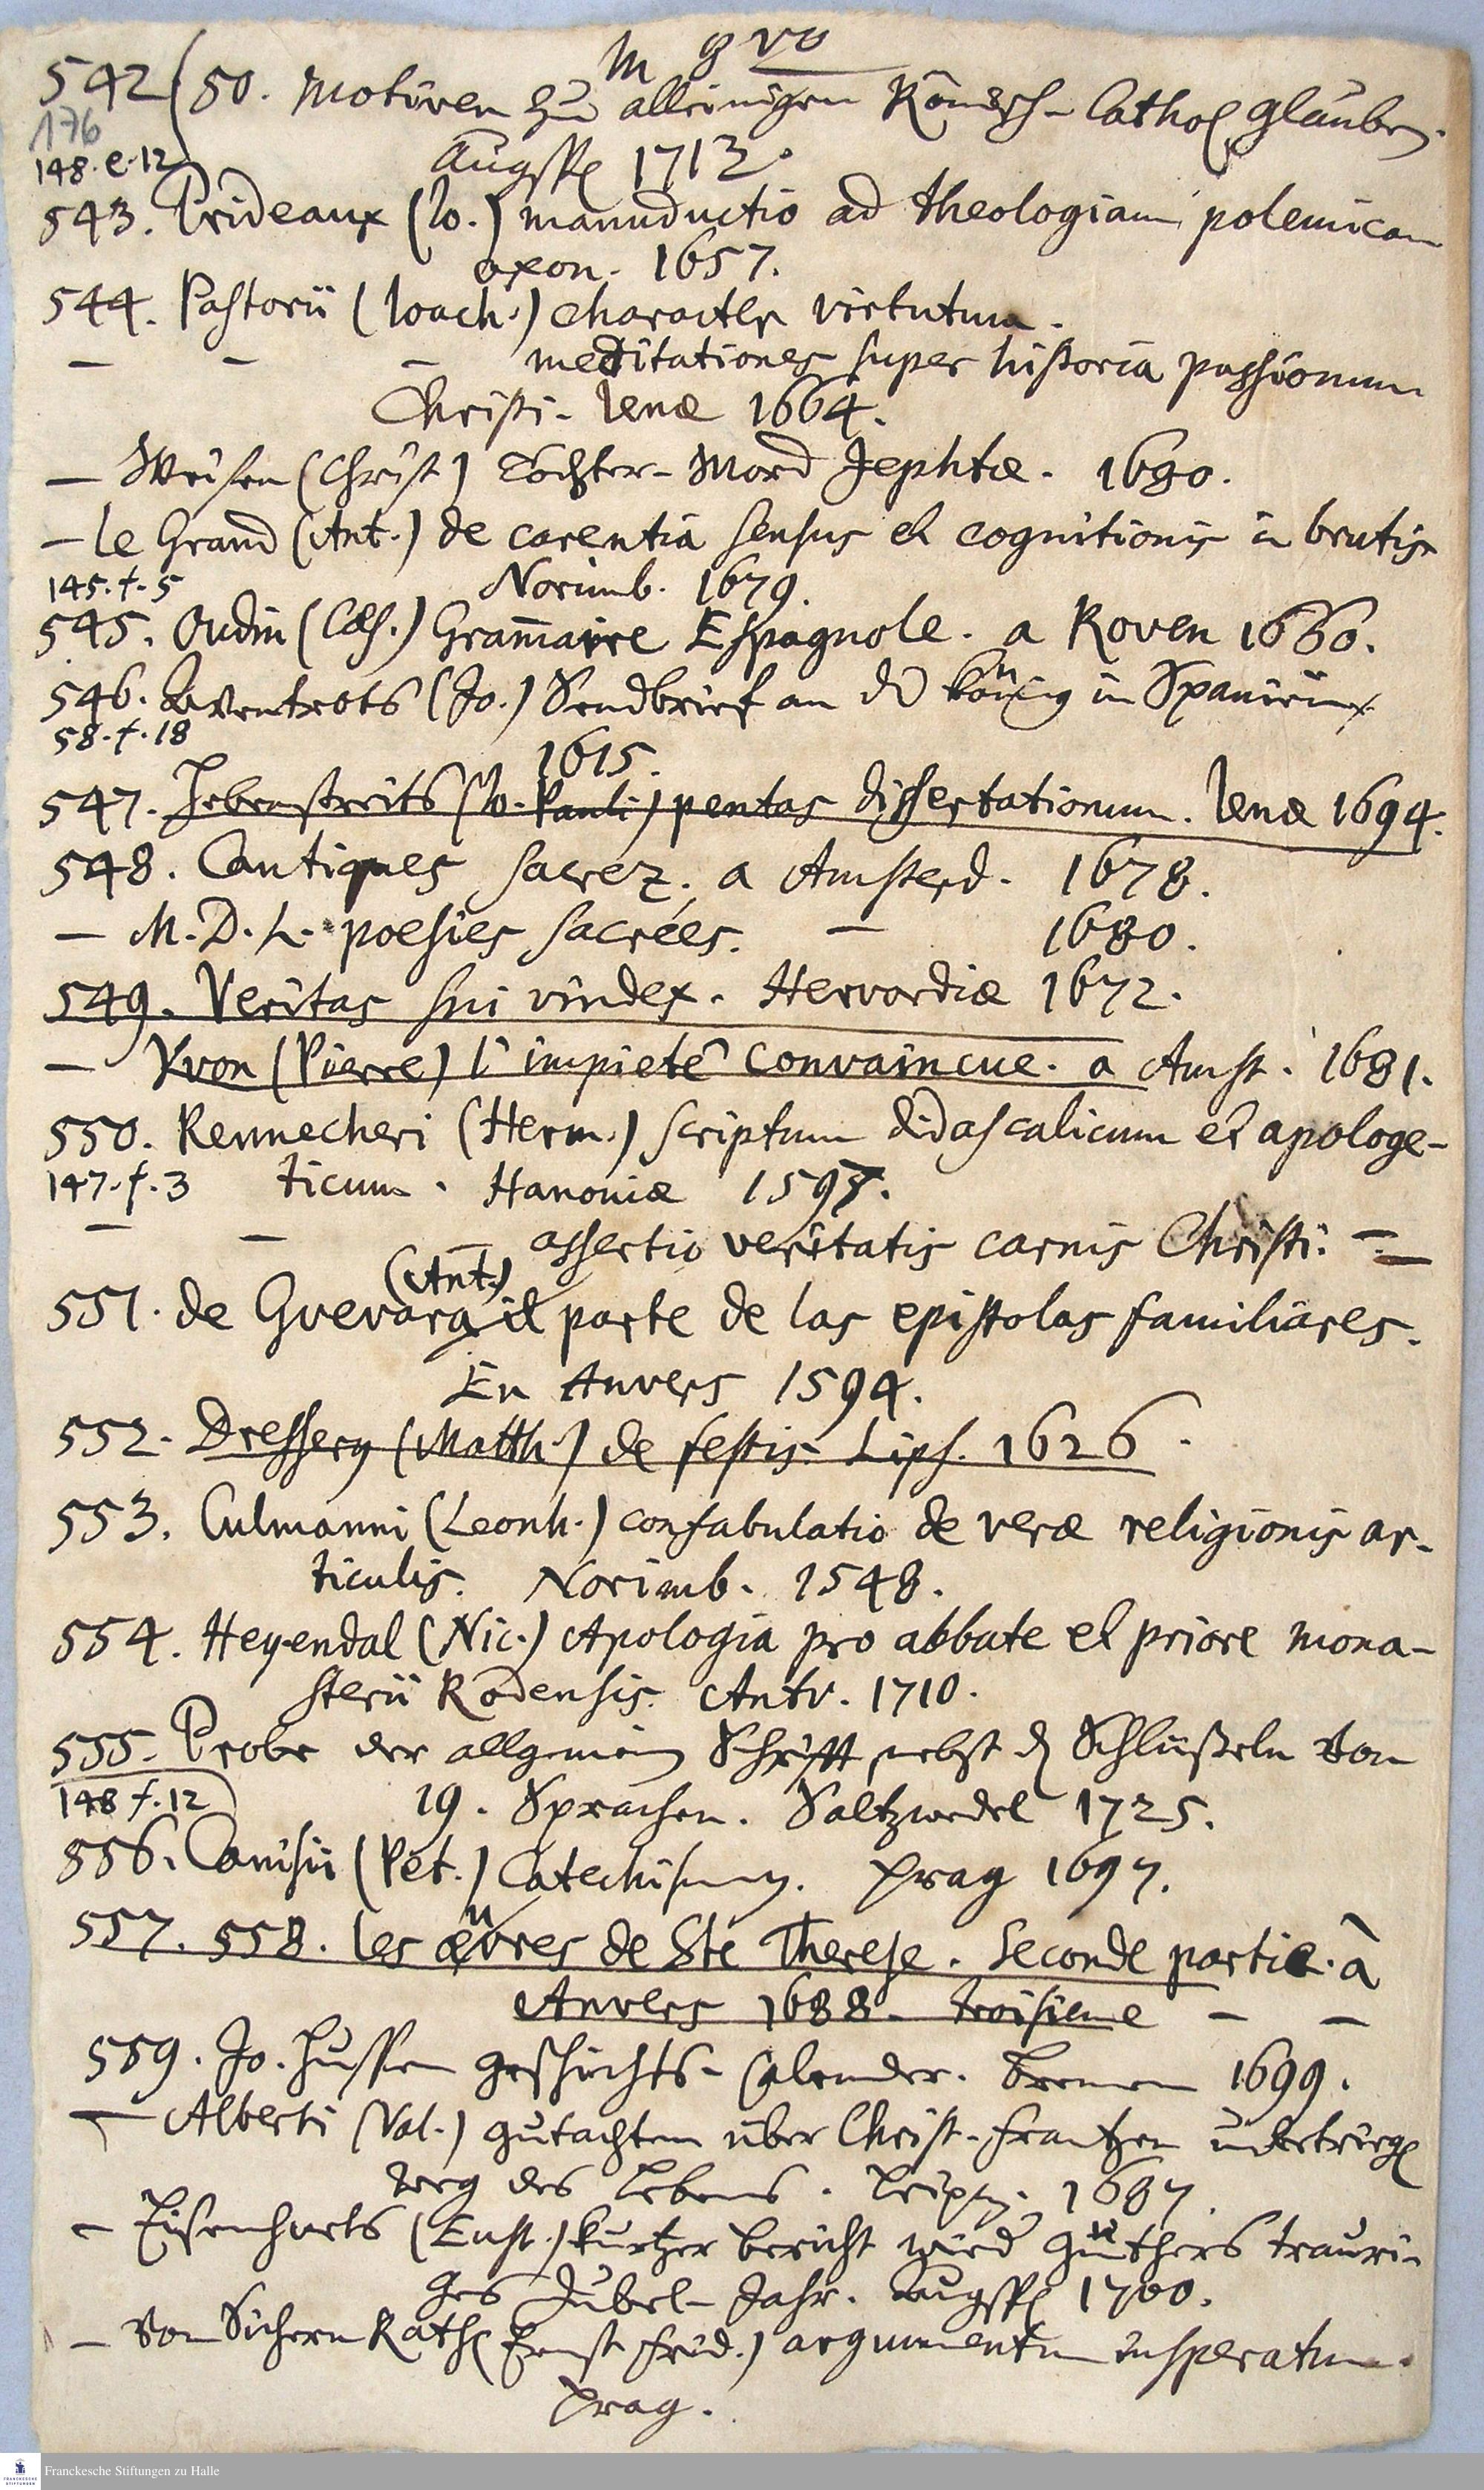 in 8vo
542 (50. Motiven zum alleinigen Römisch-Cathol. Glauben.
176
148.e.12
Augsp. 1712.
543. Prideaux (Io.) manuductio ad theologiam polemicam
oxon. 1657.
544. Pastorii (Ioach.) character virtutum.
— — — meditationes super historia passionum
Christi. Ienæ 1664.
— Weisen (Christ) Töchter-Mord Jephtæ. 1680.
— le Grand (Ant.) de carentia sensus et cognitionis in brutis
145.f.5 Norimb. 1679.
545. Oudin (Cæs.) Grammaire Espagnole. a Roven 1660.
546. Aventrots (Jo.) Sendbrief an den König in Spanien
58.f.18
1615.
547. Hebenstreits (Io. Pauli) pentas dissertationum. Ienæ 1694.
548. Cantiques sacrez. a Amsterd. 1678.
— M.D.L. poesies sacrées. — 1680.
549. Veritas sui vindex. Hervordiæ 1672.
— Yvon (Pierre) l'impieté convaincue. a Amst. 1681.
550. Rennecheri (Herm.) scriptum didascalicum et apologe-
147.f.3 ticum. Hanoviæ 1597.
— — — assertio veritatis carnis Christi. — —
(Ant.)
551. de Gvevara il parte de las epistolas familiares.
En Anvers 1594.
552. Dressery (Matth.) de festis. Lips. 1626.
553. Culmanni (Leonh.) confabulatio de veræ religionis ar-
ticulis. Norimb. 1548.
554. Heyendal (Nic.) Apologia pro abbate et priore mona-
sterii Rodensis. Antv. 1710.
555. Probe der allgemeinen Schrifft nebst den Schlüßeln von
148 f.12 19. Sprachen. Saltzwedel 1725.
556. Canisii (Pet.) Catechismus. Prag 1697.
557. 558. les œuvres de Ste Therese. Seconde partie. à
Anvers 1688. troisieme — —
559. Jo. Hussen Geschichts-Calender. Bremen 1699.
— Alberti (Val.) Gutachten über Christ. Frantzen
weg des Lebens. Leipz. 1687.
— Eisenharts (Eust.) kurtzer bericht wieder Günthers trauri-
ges Jubel-Jahr. Augsp. 1700.
— von Sichern Rath (Ernst Frid.) argumentum insperatum.
Prag.
Franckesche Stiftungen zu Halle